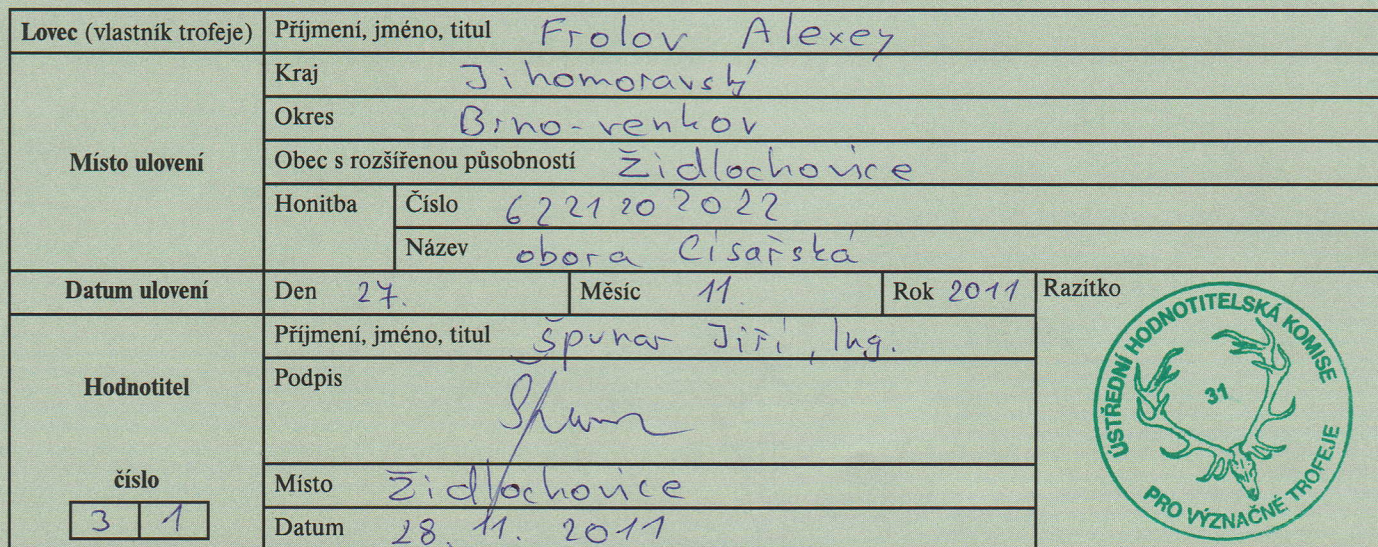 Lovec (vlastník trofeje) Příjmení, jméno, titul Frolov Alexey
Místo ulovení
Kraj Jihomoravský
Okres Brno-venkov
Obec s rozšířenou působností Židlochovice
Honitba Číslo 6221202022
Název obora Císařská
Datum ulovení Den 27. Měsíc 11. Rok 2011 Razítko
Hodnotitel
Příjmení, jméno, titul Špunar Jiří, Ing.
Podpis
číslo
3 1
Místo Židlochovice
Datum 28. 11. 2011
ÚSTŘEDNÍ HODNOTITELSKÁ KOMISE
31
PRO VÝZNAČNÉ TROFEJE